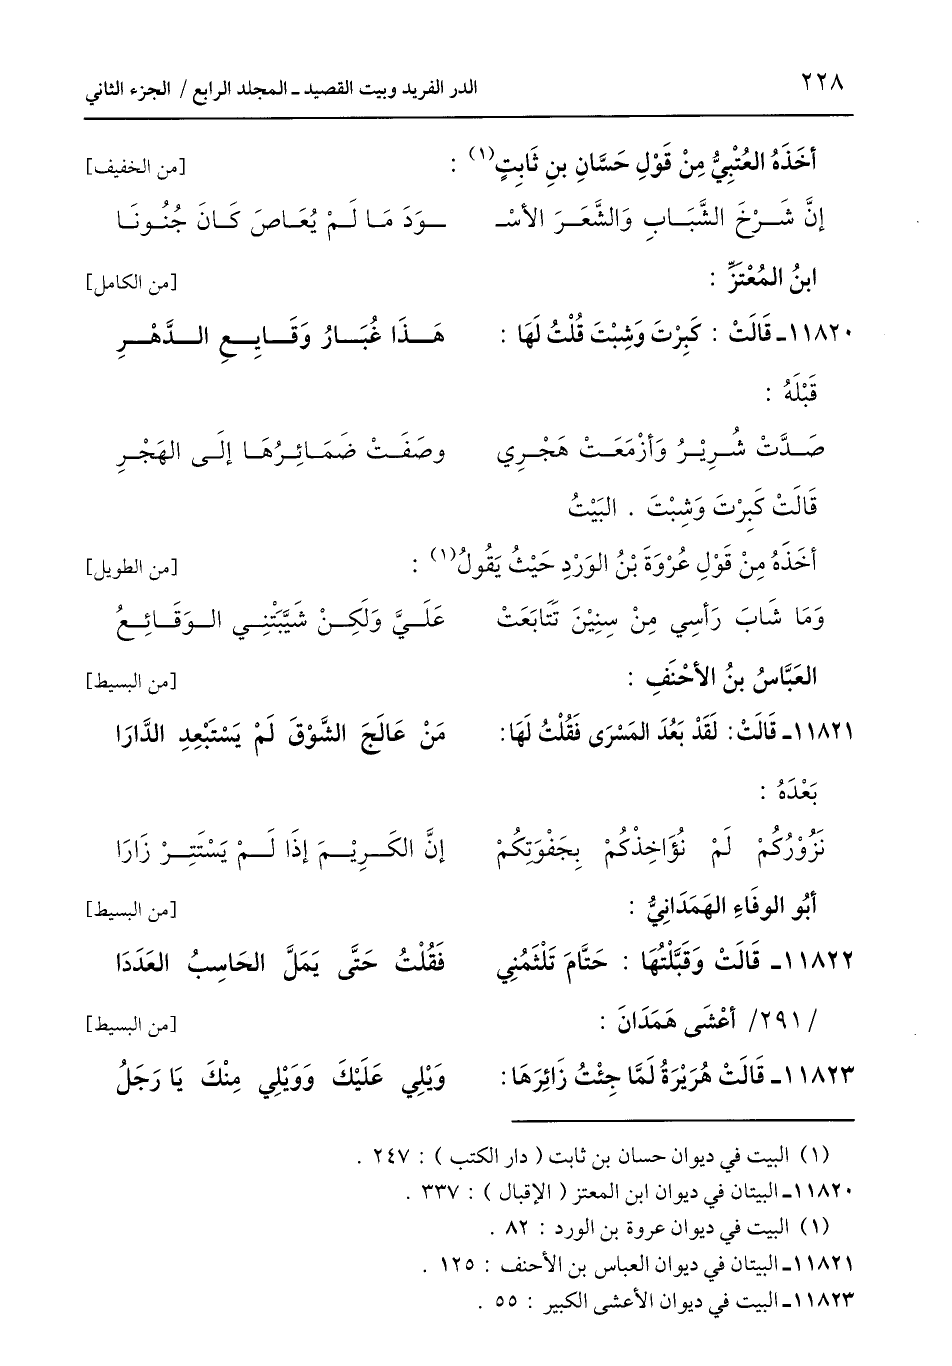 ٢٢٨ الدر الفريد وبيت القصيد ـ المجلد الرابع / الجزء الثاني
أَخَذَهُ العُتْبِيُّ مِنْ قَوْلِ حَسَّانِ بنِ ثَابِتٍ(١) : [من الخفيف]
إنَّ شَـرْخَ الشَّبَـابِ وَالشَّعَـرَ الأسْـ ـوَدَ مَـا لَـمْ يُعَـاصَ كَـانَ جُنُـونَـا
ابنُ المُعْتَزِّ : [من الكامل]
١١٨٢٠ـ قَالَتْ : كَبِرْتَ وَشِبْتَ قُلْتُ لَهَا : هَـذَا غُبَـارُ وَقَـايِـعِ الـدَّهْـرِ
قَبْلَهُ :
صَـدَّتْ شُـرِيْـرُ وَأزْمَعَـتْ هَجْـرِي وصَفَـتْ ضَمَـايِـرُهَـا إلَـى الهَجْـرِ
قَالَتْ كَبِرْتَ وَشِبْتَ . البَيْتُ
أخَذَهُ مِنْ قَوْلِ عُرْوَةَ بْنُ الوَرْدِ حَيْثُ يَقُولُ(١) : [من الطويل]
وَمَا شَابَ رَأسِي مِنْ سِنِيْنَ تَتَابَعَتْ عَلَـيَّ وَلَكِـنْ شَيَّبَتْنِـي الـوَقَـائِـعُ
العَبَّاسُ بنُ الأحْنَفِ : [من البسيط]
١١٨٢١ـ قَالَتْ: لَقَدْ بَعُدَ المَسْرَى فَقُلْتُ لَهَا: مَنْ عَالَجَ الشَّوْقَ لَمْ يَسْتَبْعِدِ الدَّارَا
بَعْدَهُ :
نَزُوْرُكُمْ لَمْ نُؤَاخِذْكُمْ بِجَفْوَتِكُمْ إنَّ الكَـرِيْـمَ إذَا لَـمْ يَسْتَتِـرْ زَارَا
أبُو الوفَاءِ الهَمَدَانِيُّ : [من البسيط]
١١٨٢٢ـ قَالَتْ وَقَبَّلْتُهَا : حَتَّامَ تَلْثمُنِي فَقُلْتُ حَتَّى يَمَلَّ الحَاسِبُ العَدَدَا
/٢٩١/ أعْشَى هَمَدَانَ : [من البسيط]
١١٨٢٣ـ قَالَتْ هُرَيْرَةُ لَمَّا جِئْتُ زَائِرَهَا: وَيْلِي عَلَيْكَ وَوَيْلِي مِنْكَ يَا رَجَلُ
(١) البيت في ديوان حسان بن ثابت ( دار الكتب ) : ٢٤٧ .
١١٨٢٠ـ البيتان في ديوان ابن المعتز ( الإقبال ) : ٣٣٧ .
(١) البيت في ديوان عروة بن الورد : ٨٢ .
١١٨٢١ـ البيتان في ديوان العباس بن الأحنف : ١٢٥ .
١١٨٢٣ـ البيت في ديوان الأعشى الكبير : ٥٥ .